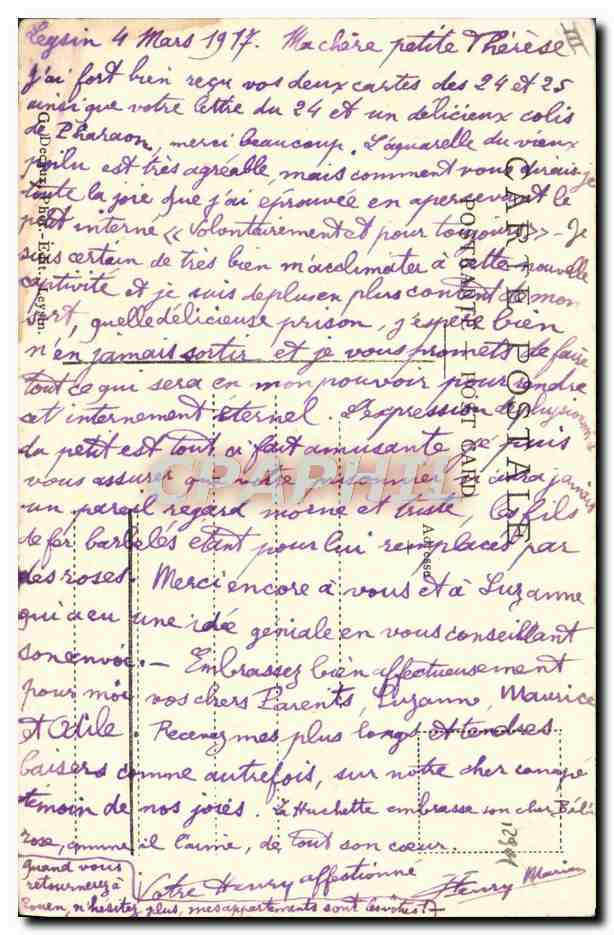 Leysin 4 Mars 1917. Ma chère petite Thérèse
J'ai fort bien reçu vos deux cartes des 24 et 25
ainsi que votre lettre du 24 et un délicieux colis
de Pharaon, merci beaucoup. L'aquarelle du vieux
poilu est très agréable, mais comment vous dirais-je
toute la joie que j'ai éprouvée en apercevant le
petit interné « Volontairement et pour toujours » - Je
suis certain de très bien m'acclimater à cette nouvelle
captivité et je suis de plus en plus content de mon
sort, quelle délicieuse prison, j'espère bien
n'en jamais sortir et je vous promets de faire
tout ce qui sera en mon pouvoir pour rendre
cet internement éternel. L'expression de physionomie
du petit est tout à fait amusante, je puis
vous assurer que votre prisonnier n'aura jamais
un pareil regard morne et triste, les fils
de fer barbelés étant pour lui remplacés par
des roses. Merci encore à vous et à Suzanne
qui a eu une idée géniale en vous conseillant
son envoi. - Embrassez bien affectueusement
pour moi vos chers Parents, Suzanne, Maurice
et Odile. Recevez mes plus longs et tendres
baisers comme autrefois, sur notre cher canapé
témoin de nos joies. La Huchette embrasse son cher
rose, comme il l'aime, de tout son cœur.
Votre Henry affectionné
Henry
Quand vous
retournerez à
Rouen, n'hésitez plus, mes appartements sont les vôtres !
CARTE POSTALE
POSTKARTE - POST CARD
Adresse
Phot.-Edit. Leysin.
CPAPHIL
III